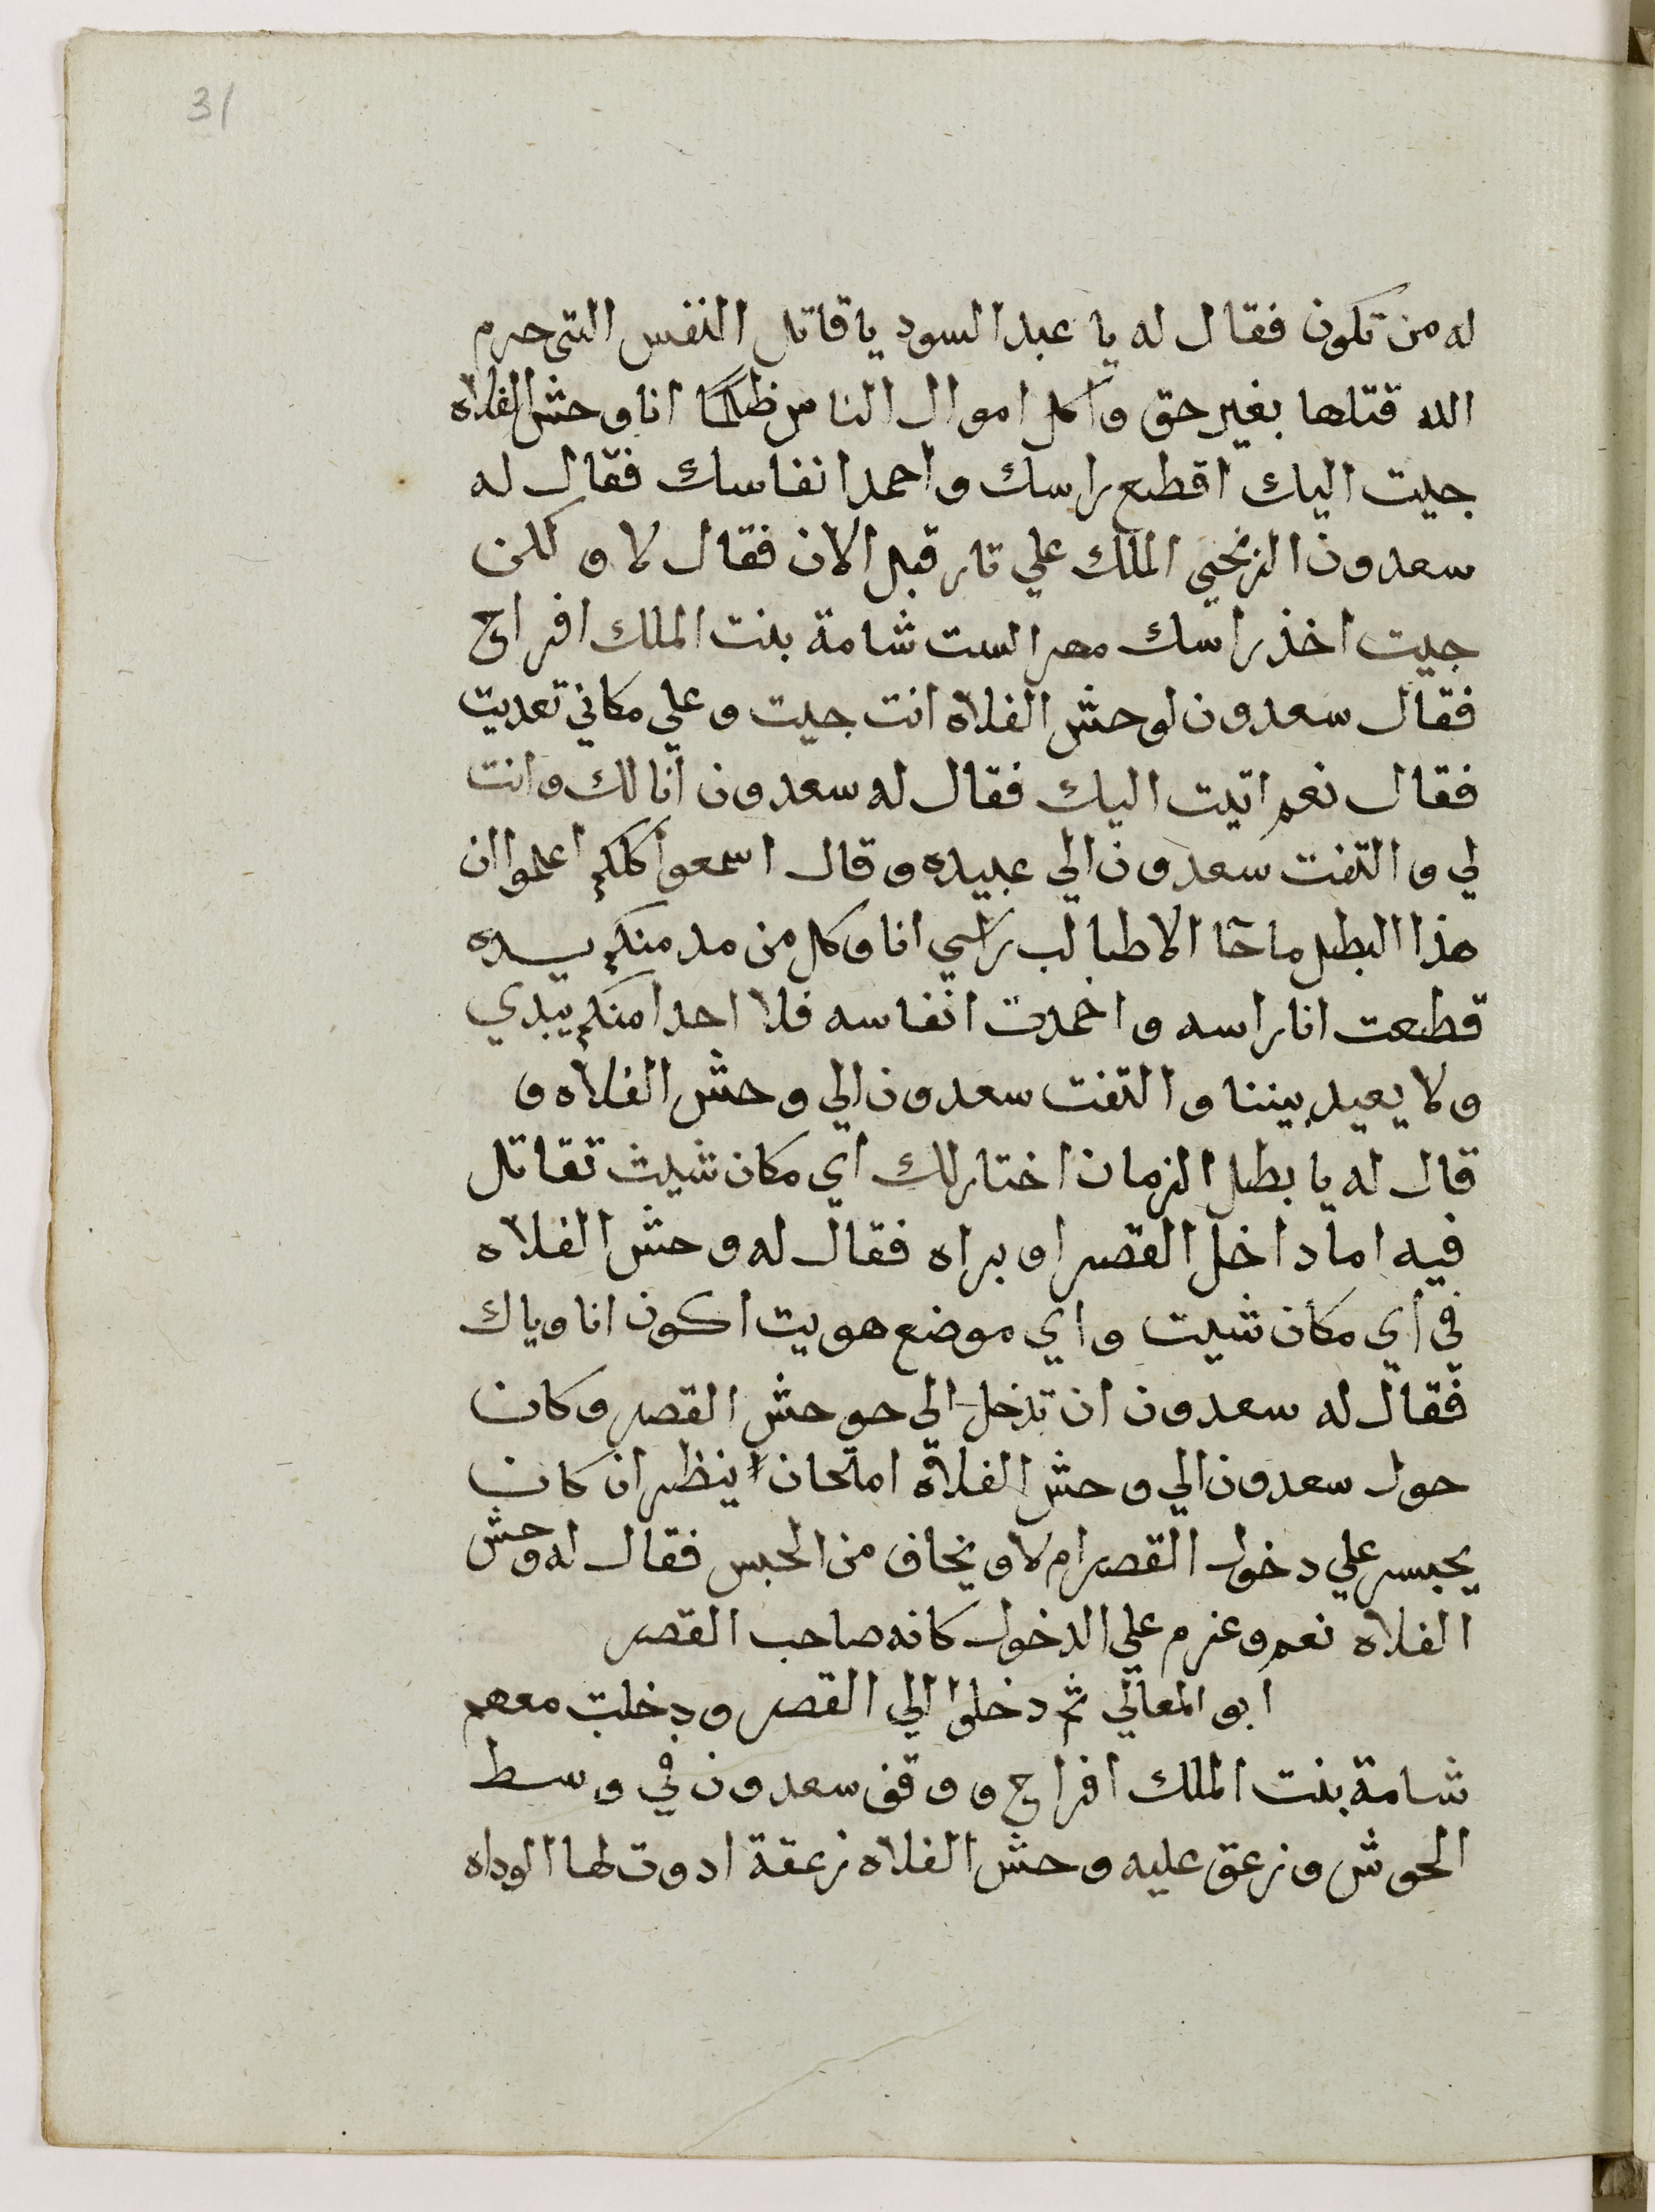 31
له من تكون فقال له يا عبد السود يا قاتل النفس التي حرم
الله قتلها بغير حق وآكل اموال الناس ظلما انا وحش الفلاه
جيت اليك اقطع راسك واحمد انفاسك فقال له
سعدون الزنجي الملك علي تار قبل الان فقال لا ولكن
جيت اخذ راسك مهر الست شامة بنت الملك افراح
فقال سعدون لوحش الفلاه انت جيت وعلي مكاني تعديت
فقال نعم اتيت اليك فقال له سعدون انا لك وانت
لي والتفت سعدون الي عبيده وقال اسمعوا كلكم اعلموا ان
هذا البطل ما جا الا طالب راسي انا وكل من مد منكم يده
قطعت انا راسه واخمدت انفاسه فلا احدا منكم يبدي
ولا يعيد بيننا والتفت سعدون الي وحش الفلاه و
قال له يا بطل الزمان اختار لك اي مكان شيت تقاتل
فيه اما داخل القصر او براه فقال له وحش الفلاه
في اي مكان شيت واي موضع هويت اكون انا وياك
فقال له سعدون ان تدخل الي حوحش القصر وكان
حول سعدون الي وحش الفلاة امتحان اينظر ان كان
يجسر علي دخول القصر ام لا ويخاف من الحبس فقال له وحش
الفلاه نعم وعزم علي الدخول كانه صاحب القصر
ابو المعالي ثم دخلوا الي القصر ودخلت معهم
شامة بنت الملك افراح ووقف سعدون في وسط
الحوش وزعق عليه وحش الفلاه زعقة ادوت لها الوداه